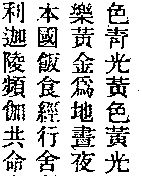 色青光黃色黃光
樂黃金為地晝夜
本國飯食經行舍
利迦陵頻伽共命